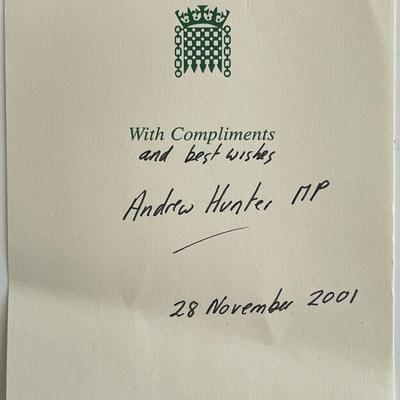 With Compliments
and best wishes
Andrew Hunter MP
28 November 2001